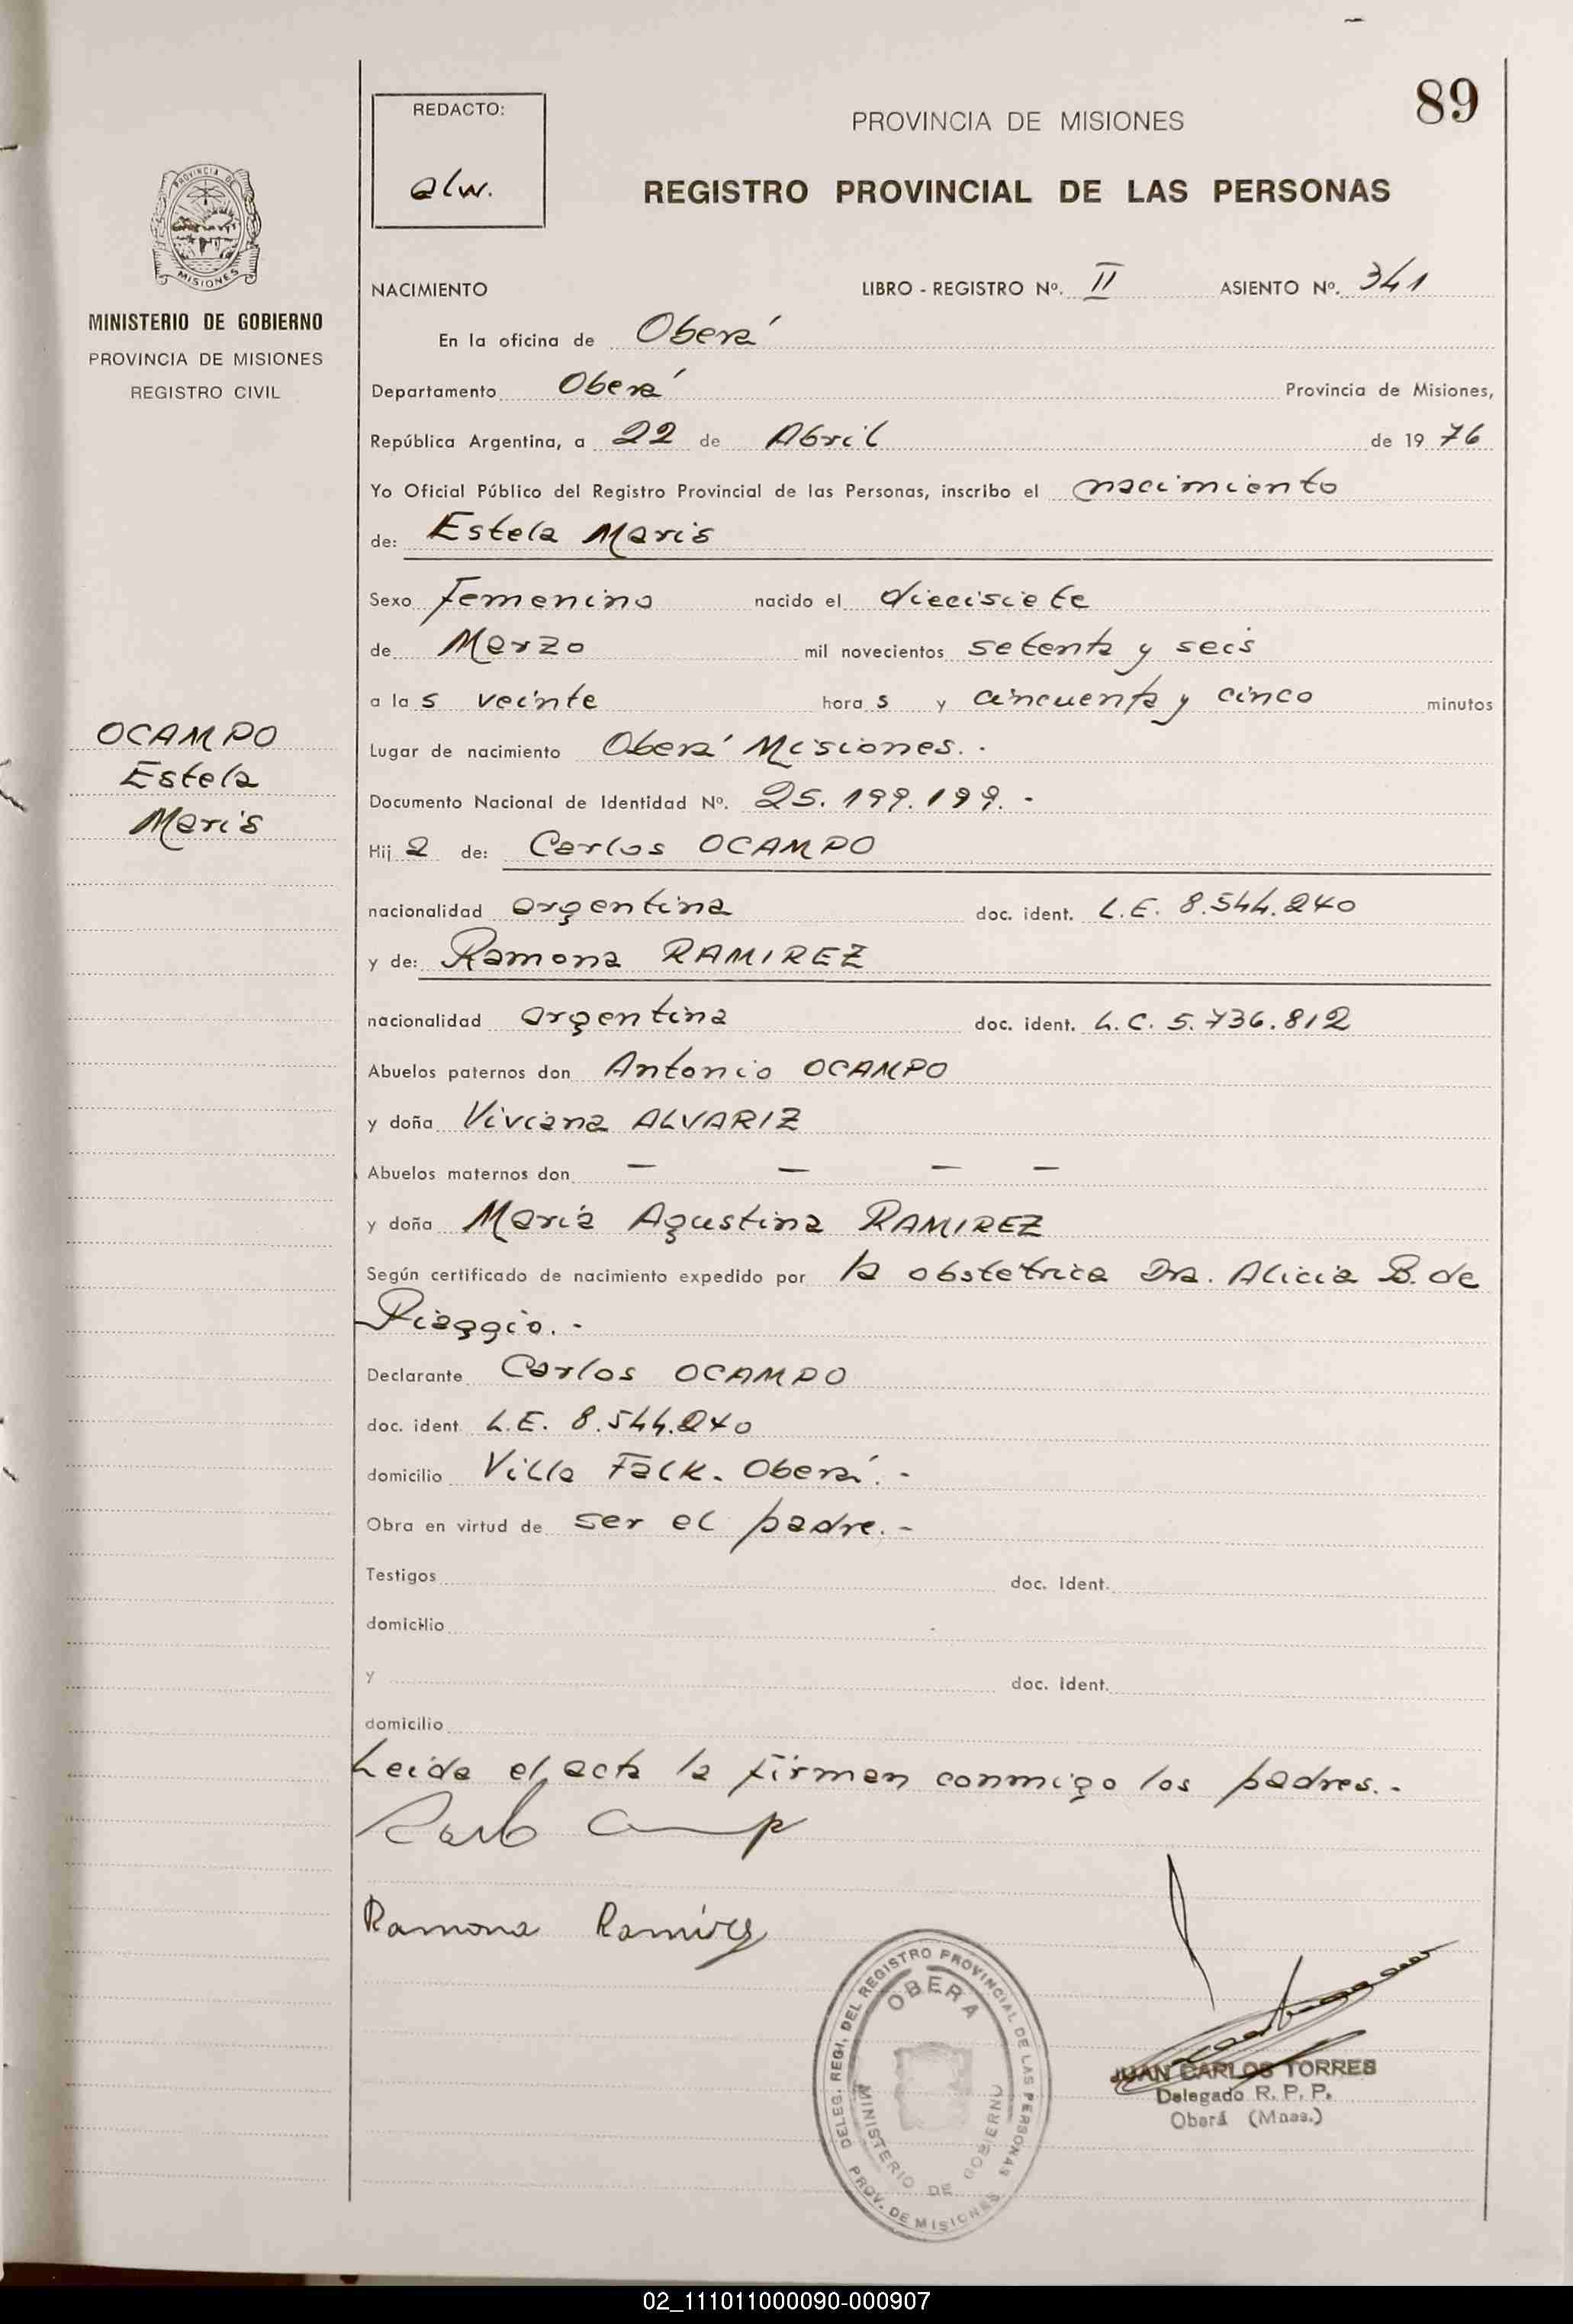 89
REDACTO:
alw.
PROVINCIA DE MISIONES
REGISTRO PROVINCIAL DE LAS PERSONAS
PROVINCIA DE
MISIONES
MINISTERIO DE GOBIERNO
PROVINCIA DE MISIONES
REGISTRO CIVIL
OCAMPO
Estela
Maris
NACIMIENTO LIBRO - REGISTRO Nº. II ASIENTO Nº. 341
En la oficina de Oberá
Departamento Oberá Provincia de Misiones,
República Argentina, a 22 de Abril de 19 76
Yo Oficial Público del Registro Provincial de las Personas, inscribo el nacimiento
de: Estela Maris
Sexo Femenino nacido el diecisiete
de Marzo mil novecientos setenta y seis
a las veinte horas y cincuenta y cinco minutos
Lugar de nacimiento Oberá Misiones. -
Documento Nacional de Identidad Nº. 25.199.199. -
Hij a de: Carlos OCAMPO
nacionalidad argentina doc. ident. L.E. 8.544.240
y de: Ramona RAMIREZ
nacionalidad argentina doc. ident. L.C. 5.736.812
Abuelos paternos don Antonio OCAMPO
y doña Viviana ALVARIZ
Abuelos maternos don — — — —
y doña María Agustina RAMIREZ
Según certificado de nacimiento expedido por la obstetrica Dra. Alicia B. de
Piaggio. -
Declarante Carlos OCAMPO
doc. ident. L.E. 8.544.240
domicilio Villa Falk. Oberá. -
Obra en virtud de ser el padre. -
Testigos doc. Ident.
domicilio
y doc. Ident.
domicilio
Leida el acta la firman conmigo los padres. -
Ramona Ramirez
DELEG. REGI. DEL REGISTRO PROVINCIAL DE LAS PERSONAS
OBERA
MINISTERIO DE GOBIERNO
PROV. DE MISIONES
JUAN CARLOS TORRES
Delegado R. P. P.
Oberá (Mnes.)
02_111011000090-000907